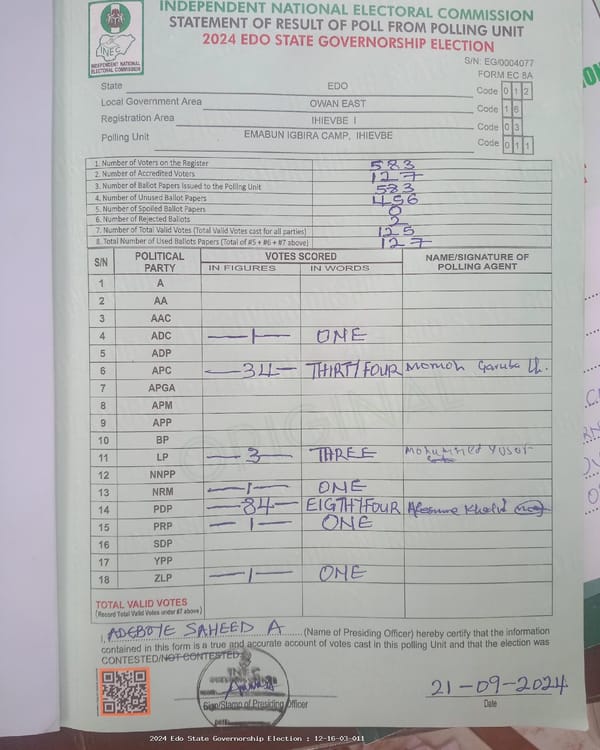 INDEPENDENT NATIONAL ELECTORAL COMMISSION
STATEMENT OF RESULT OF POLL FROM POLLING UNIT
2024 EDO STATE GOVERNORSHIP ELECTION
INEC
INDEPENDENT NATIONAL
ELECTORAL COMMISSION
S/N: EG/0004077
FORM EC 8A
State EDO Code 0 1 2
Local Government Area OWAN EAST Code 1 6
Registration Area IHIEVBE I Code 0 3
Polling Unit EMABUN IGBIRA CAMP, IHIEVBE Code 0 1 1
1. Number of Voters on the Register 583
2. Number of Accredited Voters 127
3. Number of Ballot Papers Issued to the Polling Unit 583
4. Number of Unused Ballot Papers 456
5. Number of Spoiled Ballot Papers 0
6. Number of Rejected Ballots 2
7. Number of Total Valid Votes (Total Valid Votes cast for all parties) 125
8. Total Number of Used Ballots Papers (Total of #5 + #6 + #7 above) 127
S/N POLITICAL PARTY VOTES SCORED NAME/SIGNATURE OF POLLING AGENT
IN FIGURES IN WORDS
1 A
2 AA
3 AAC
4 ADC —1— ONE
5 ADP
6 APC —34— THIRTYFOUR Momoh Garuba
7 APGA
8 APM
9 APP
10 BP
11 LP —3— THREE Mohammed Yusuf
12 NNPP
13 NRM —1— ONE
14 PDP —84— EIGTHYFOUR Khalid
15 PRP —1— ONE
16 SDP
17 YPP
18 ZLP —1— ONE
ORIGINAL
TOTAL VALID VOTES
(Record Total Valid Votes under #7 above)
I, ADEBOYE SAHEED A (Name of Presiding Officer) hereby certify that the information
contained in this form is a true and accurate account of votes cast in this polling Unit and that the election was
CONTESTED/NOT CONTESTED
INEC
Sign/Stamp of Presiding Officer
DATE
21-09-2024
Date
2024 Edo State Governorship Election : 12-16-03-011